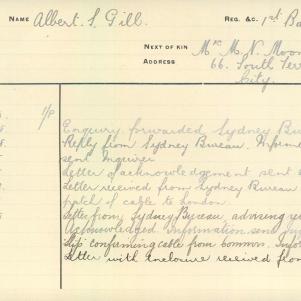 NAME Albert S. Gill. REG. &C. 1st Ba
NEXT OF KIN Mrs M. N. Moo
66. South Terr
City.
1/P
Enquiry forwarded Sydney Bu
Reply from Sydney Bureau. Informa
sent Inquirer
Letter of acknowledgement sent
Letter received from Sydney Bureau
patch of cable to London.
Letter from Sydney Bureau, advising re
Acknowledged Information send
Slip confirming cable from common. Info
Letter with enclosure received from